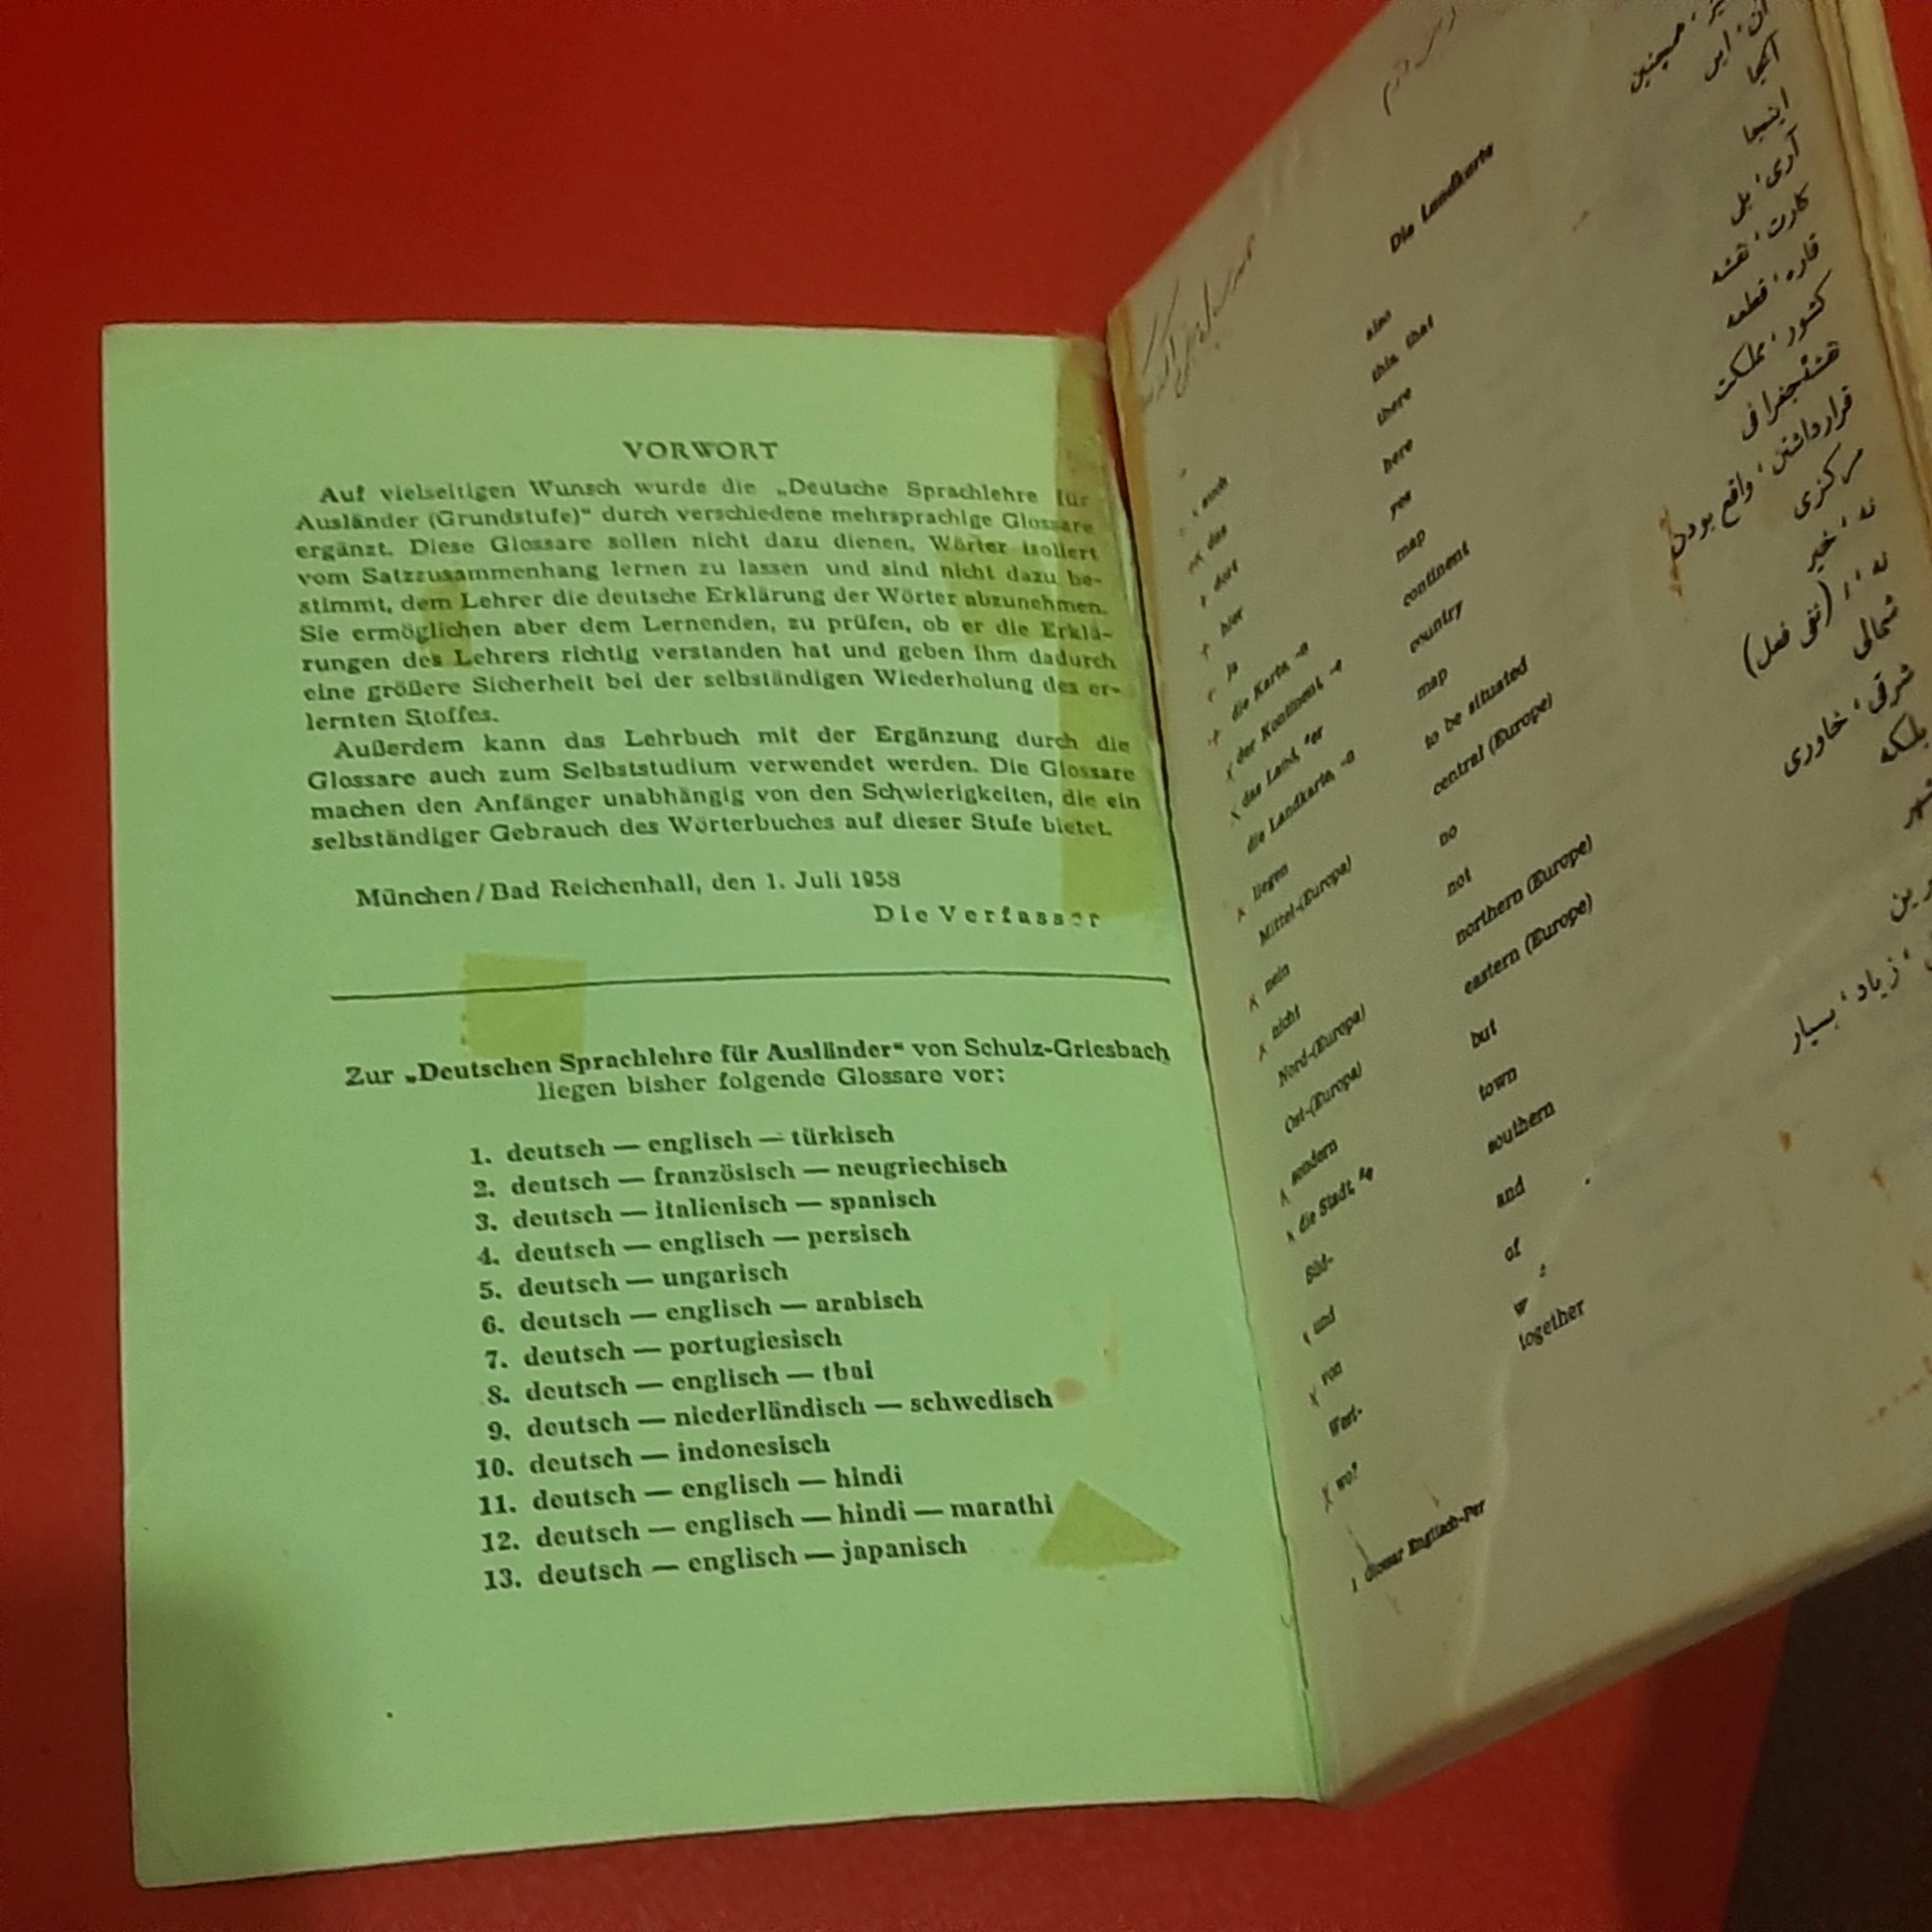 VORWORT
Auf vielseitigen Wunsch wurde die „Deutsche Sprachlehre für
Ausländer (Grundstufe)“ durch verschiedene mehrsprachige Glossare
ergänzt. Diese Glossare sollen nicht dazu dienen, Wörter isoliert
vom Satzzusammenhang lernen zu lassen und sind nicht dazu be-
stimmt, dem Lehrer die deutsche Erklärung der Wörter abzunehmen.
Sie ermöglichen aber dem Lernenden, zu prüfen, ob er die Erklä-
rungen des Lehrers richtig verstanden hat und geben ihm dadurch
eine größere Sicherheit bei der selbständigen Wiederholung des er-
lernten Stoffes.
Außerdem kann das Lehrbuch mit der Ergänzung durch die
Glossare auch zum Selbststudium verwendet werden. Die Glossare
machen den Anfänger unabhängig von den Schwierigkeiten, die ein
selbständiger Gebrauch des Wörterbuches auf dieser Stufe bietet.
München/Bad Reichenhall, den 1. Juli 1958
Die Verfasser
Zur „Deutschen Sprachlehre für Ausländer“ von Schulz-Griesbach
liegen bisher folgende Glossare vor:
1. deutsch — englisch — türkisch
2. deutsch — französisch — neugriechisch
3. deutsch — italienisch — spanisch
4. deutsch — englisch — persisch
5. deutsch — ungarisch
6. deutsch — englisch — arabisch
7. deutsch — portugiesisch
8. deutsch — englisch — thai
9. deutsch — niederländisch — schwedisch
10. deutsch — indonesisch
11. deutsch — englisch — hindi
12. deutsch — englisch — hindi — marathi
13. deutsch — englisch — japanisch
Die Landkarte
auch also همچنین
das this, that آن، این
dort there آنجا
hier here اینجا
ja yes آری، بلی
die Karte, -n map کارت، نقشه
der Kontinent, -e continent قاره، قطعه
das Land, ¨er country کشور، مملکت
die Landkarte, -n map نقشهٔ جغرافی
liegen to be situated قرار داشتن، واقع بودن
Mittel-(Europa) central (Europe) مرکزی
nein no نه، خیر
nicht not نه، (نفی فعل)
Nord-(Europa) northern (Europe) شمالی
Ost-(Europa) eastern (Europe) شرقی، خاوری
sondern but بلکه
die Stadt, ¨e town شهر
Süd- southern
und and
von of
West- w
wo?
together
زیاد، بسیار
1 Glossar Englisch-Per